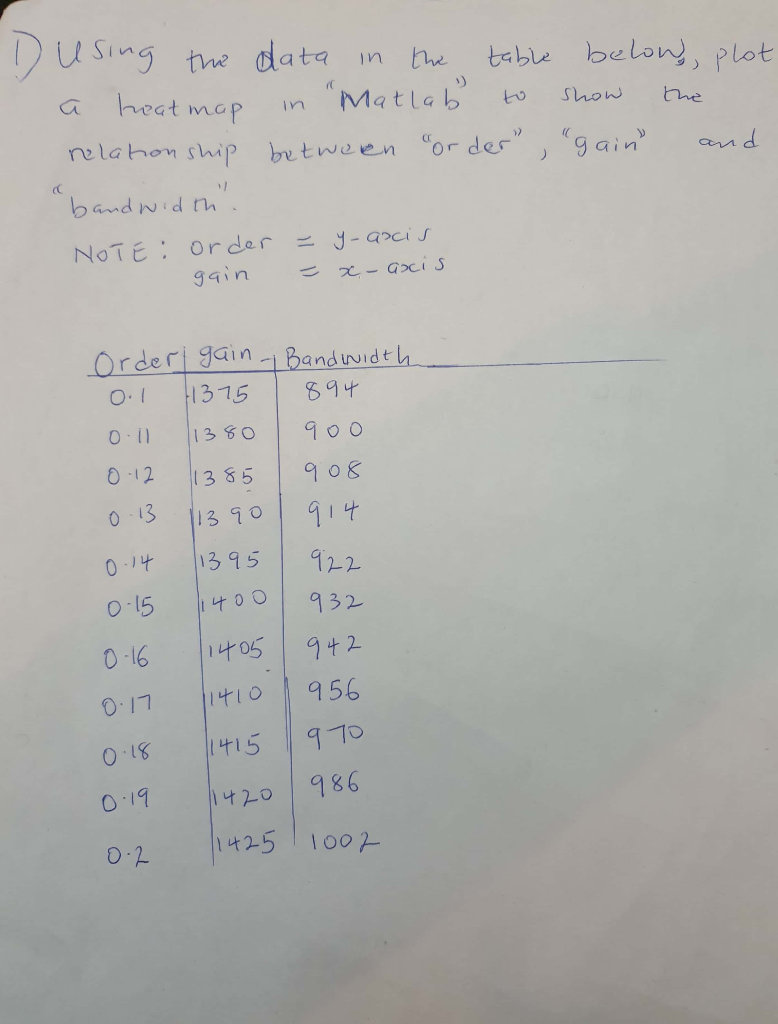 1) Using the data in the table below, plot
a heatmap in "Matlab" to show the
relationship between "order", "gain" and
"bandwidth".
NOTE: order = y-axis
gain = x-axis
Order gain Bandwidth
0.1 1375 894
0.11 1380 900
0.12 1385 908
0.13 1390 914
0.14 1395 922
0.15 1400 932
0.16 1405 942
0.17 1410 956
0.18 1415 970
0.19 1420 986
0.2 1425 1002